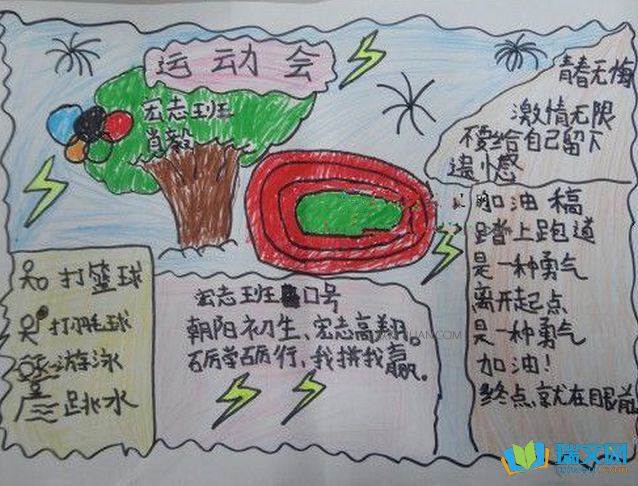 运动会
宏志班
肖毅
青春无悔
激情无限
不要给自己留下
遗憾
加油稿
踏上跑道
是一种勇气
离开起点
是一种勇气
加油!
终点,就在眼前
打篮球
打羽毛球
游泳
跳水
宏志班口号
朝阳初生、宏志高翔。
砺学砺行,我拼我赢。
瑞文网